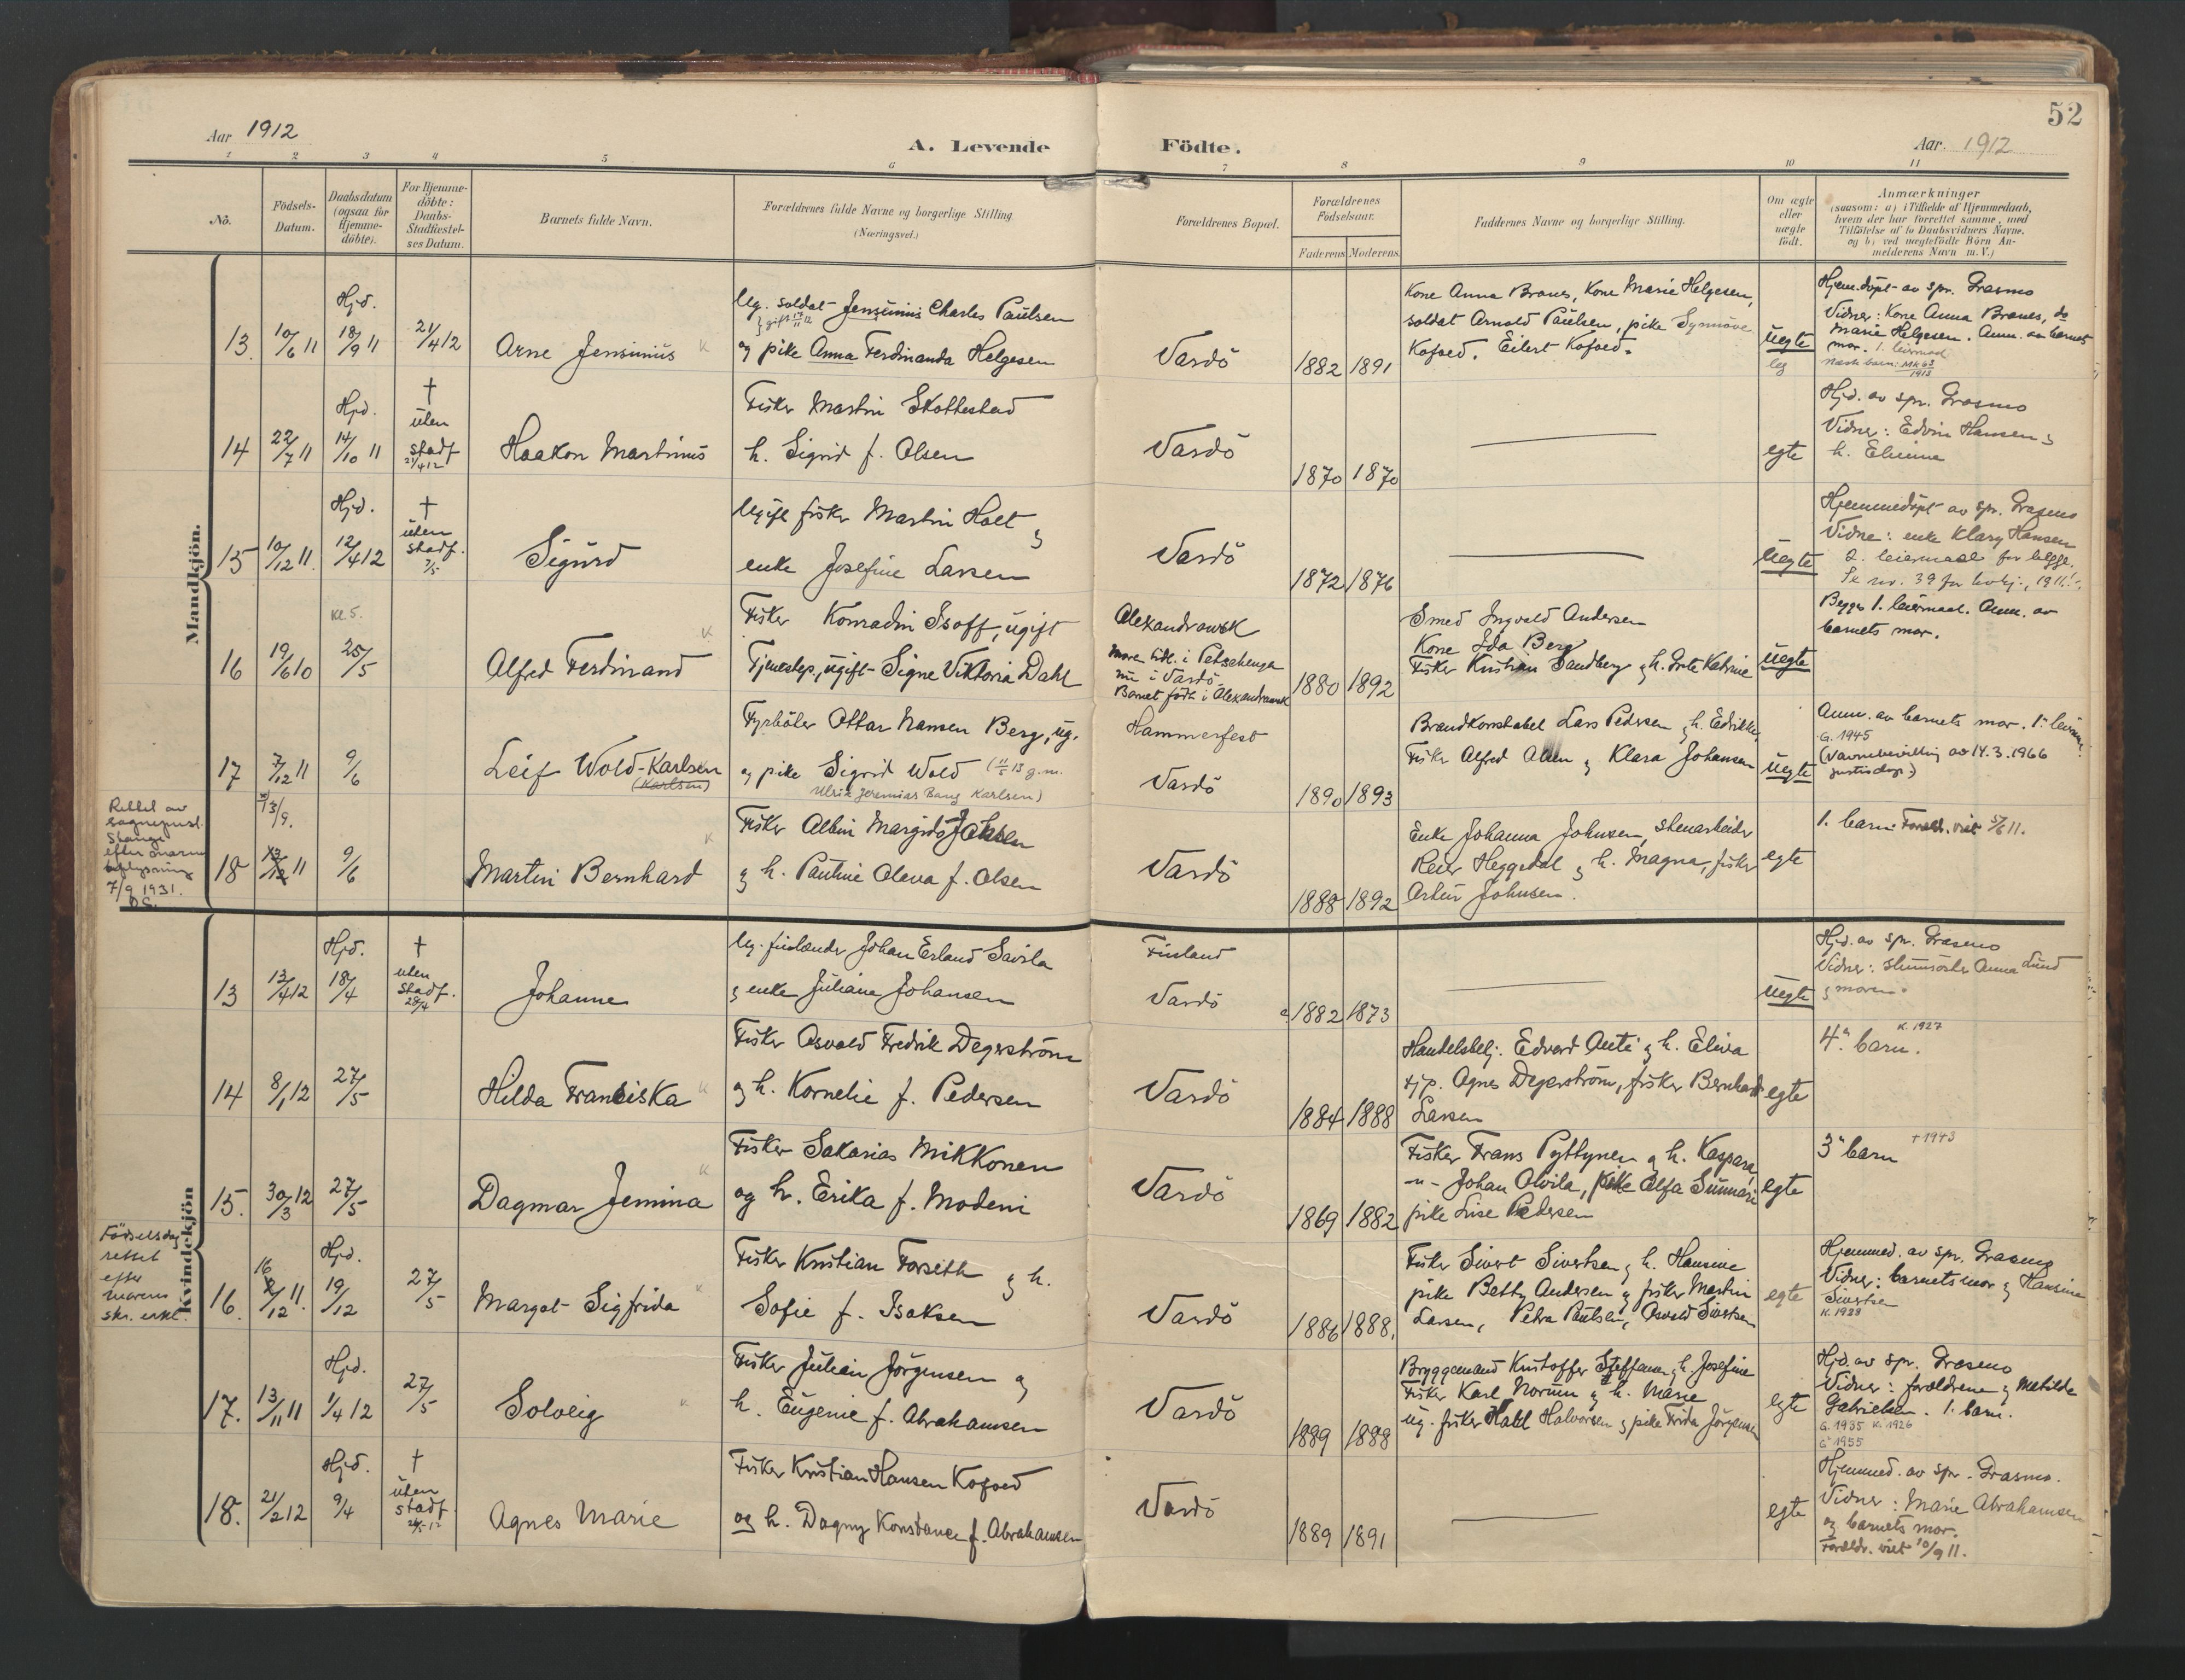 52
Aar 1912
A. Levende Födte.
Aar. 1912
1 2 3 4 5 6 7 8 9 10 11
No.
Födsels-Datum.
Daabsdatum (ogsaa for Hjemme-döbte).
For Hjemme-döbte: Daabs-Stadfæstel-ses Datum.
Barnets fulde Navn.
Forældrenes fulde Navne og borgerlige Stilling.
(Næringsvei.)
Forældrenes Bopæl.
Forældrenes Födselsaar.
Faderens Moderens
Faddernes Navne og borgerlige Stilling.
Om ægte eller uægte födt.
Anmærkninger
(saasom: a) i Tilfælde af Hjemmedaab,
hvem der har forrettet samme, med
Tilföielse af to Daabsvidners Navne.
og b) ved uægtefödte Börn An-
melderens Navn m.V.)
Mandkjön.
13. 10/6 11
Hjd.
18/9 11
21/4 12
Arne Jensinius
Ug. soldat Jensinius Charles Paulsen
og pike Anna Ferdinanda Helgesen
Vardö
1882 1891
Kone Anna Branes, Kone Marie Helgesen,
soldat Arnold Paulsen, pike Synnöve
Kofoed. Eilert Kofoed.
uegte
Hjem.döpt av spr. Grasmo
Vidner: Kone Anna Branes, do
Marie Helgesen. Anm. av barnets
mor. 1. leiermaal
14 22/7 11
Hjd.
14/10 11
†
uten
stadf
21/4 12
Haakon Martinus
Fisker Martin Skottestad
h. Sigrid f. Olsen
Vardö
1870 1870
egte
Hjd. av spr. Grasmo
Vidner: Edvin Hansen &
h. Elienne
15 10/12 11.
Hjd.
12/4 12
†
uten
stadf.
7/5
Sigurd
Ugift fisker Martin Holt &
enke Josefine Larsen
Vardö
1872 1876
uegte
Hjemmedöpt av spr. Grasmo
Vidne: enke Klary Hansen
2. leiermaal for begge.
Se nr. 39 for kvkj., 1911.
16 19/6 10
Kl 5.
25/5
Alfred Ferdinand
Fisker Konradin Isoff, ugift
Tjenestep., ugift Signe Viktoria Dahl
Alexandrowsk
Moren tidl. i Petschenga
nu i Vardö.
Barnet födt i Alexandrowsk
1880 1892
Smed Ingvald Andersen
Kone Ida Berg
Fisker Kristian Sandberg & h. Grete Katrine
uegte
Begges 1. leiermaal. Anm. av
barnets mor.
17 7/12 11
9/6
Leif Wold-Karlsen
(Karlsen)
Fyrböter Ottar Nansen Berg, ug.
og pike Sigrid Wold (11/5 13 g.m.
Ulrik Jeremias Bang Karlsen)
Hammerfest
Vardö
1890 1893
Brandkonstabel Lars Pedersen & h. Edrikke,
Fisker Alfred Olsen & Klara Johansen
uegte
Anm. av barnets mor. 1. leierm.
G. 1945
(Navnebevilling av 14.3.1966
justisdep.)
Rettet av
sogneprest
Stange
efter morens
oplysning
7/9 1931.
18 13/9. 11
9/6
Martin Bernhard
Fisker Albin Margido Johnsen
& h. Pauline Oleva f. Olsen
Vardö
1888 1892
Enke Johanna Johnsen, stenarbeider
Reier Heggedal & h. Magna, fisker
Artur Johnsen.
egte
1. barn. Foræld. viet 5/6 11.
Kvindekjön
13 13/4 12
Hjd.
18/4
†
uten
stadf.
28/4
Johanne
Ug. finlænder Johan Erland Savila
& enke Juliane Johansen
Finland
Vardö
1882 1873
uegte
Hjd. av spr. Grasmo
Vidner: slumsöster Anna Lund
& moren.
14 8/1 12
27/5
Hilda Franciska
Fisker Osvald Fredrik Degerström
og h. Kornelie f. Pedersen
Vardö
1884 1888
Handelsbetj. Edvard Anti & h. Eliva
tjp. Agnes Degerström, fisker Bernhard
Larsen
egte
4. barn.
K. 1927
15. 30/3 12
27/5
Dagmar Jemina
Fisker Sakarias Mikkonen
og h. Erika f. Modeni
Vardö
1869 1882
Fisker Frans Pyttynen & h. Kaspara,
-"- Johan Olvila, pike Alfa Sunnari
pike Lise Pedersen
egte
3 barn
† 1943
Födselsdag
rettet
efter
morens
skr. erkl.
16. 16/12 11.
Hjd.
19/12
27/5
Margot Sigfrida
Fisker Kristian Forseth & h.
Sofie f. Isaksen
Vardö
1886 1888.
Fisker Sivert Sivertsen & h. Hansine
pike Betty Andersen & fisker Martin
Larsen, Petra Paulsen, Osvald Sivertsen
egte
Hjemmed. av spr. Grasmo
Vidner: barnets mor & Hansine
Sivertsen
K. 1928
17. 13/11 11
Hjd.
1/4 12
27/5
Solveig
Fisker Julian Jörgensen &
h. Eugenie f. Abrahamsen
Vardö
1889 1888
Bryggemand Kristoffer Steffensen & h. Josefine
Fisker Karl Norum & h. Marie
ug. fisker Halvorsen & pike Frida Jörgensen
egte
Hjd. av spr. Grasmo
Vidner: forældrene & Matilde
Gabrielsen. 1. barn.
G. 1935 K. 1926
G 1955
18. 21/2 12
Hjd.
9/4
†
uten
stadf.
Agnes Marie
Fisker Kristian Hansen Kofoed
og h. Dagny Konstance f. Abrahamsen
Vardö
1889 1891
egte
Hjemmed. av spr. Grasmo.
Vidner: Marie Abrahamsen
og barnets mor.
Foreldr. viet 10/9 11.